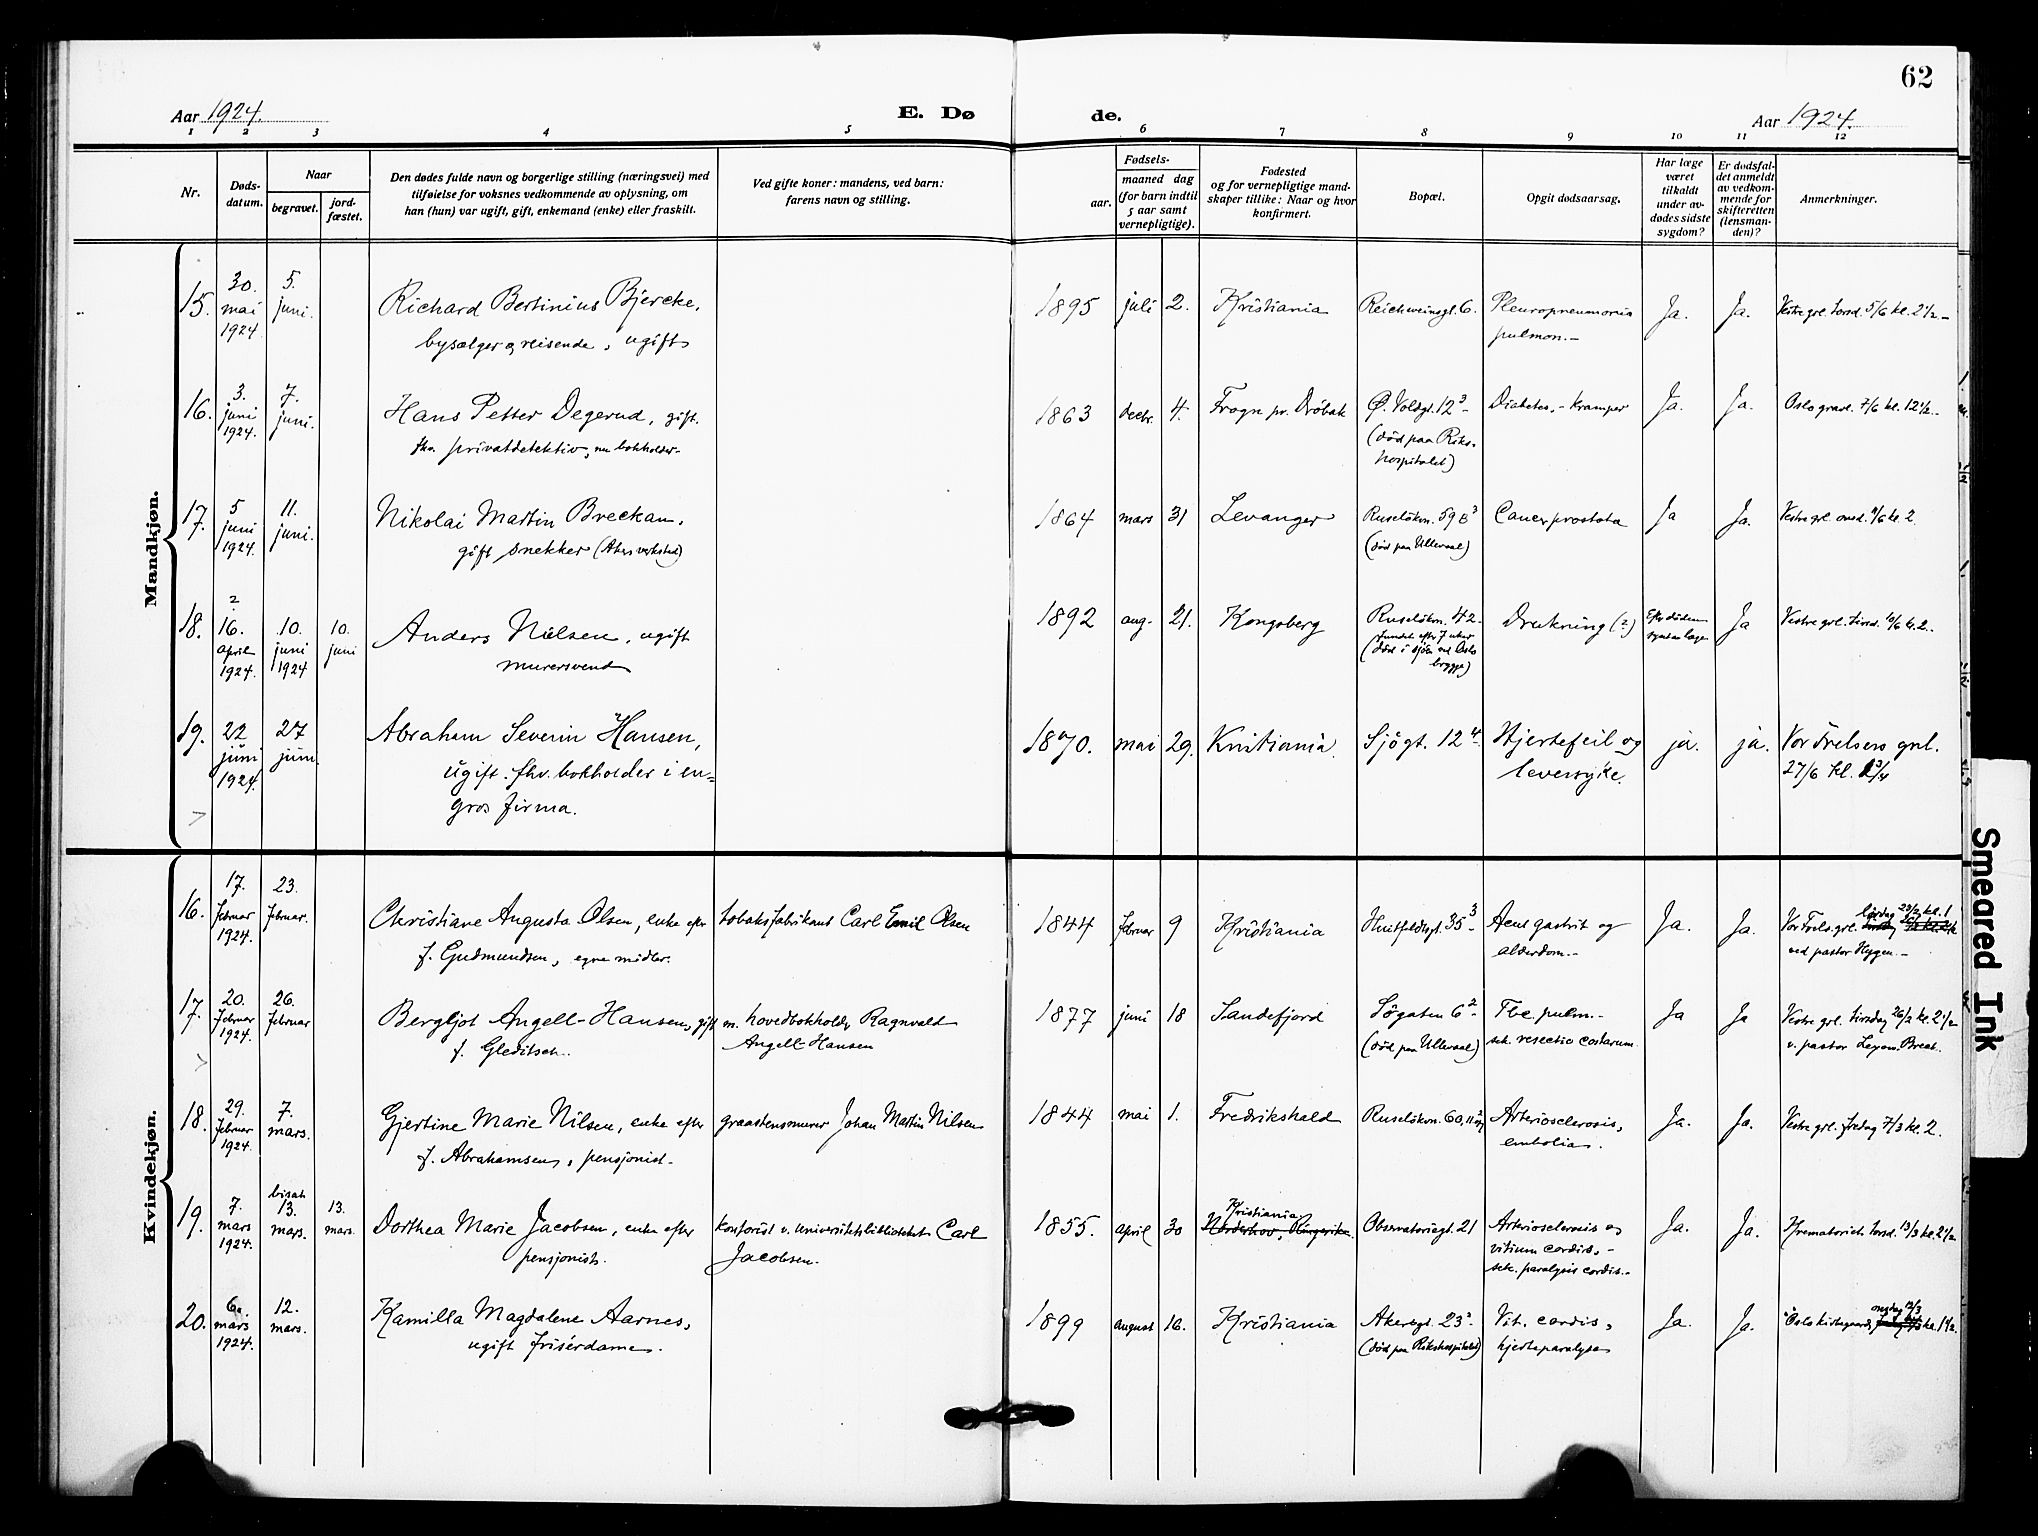 62
Aar 1924.
E. Dø
de.
Aar 1924.
1 2 3 4 5 6 7 8 9 10 11 12
Nr.
Døds-
datum.
Naar
begravet.
jord-
fæstet.
Den dødes fulde navn og borgerlige stilling (næringsvei) med
tilføielse for voksnes vedkommende av oplysning, om
han (hun) var ugift, gift, enkemand (enke) eller fraskilt.
Ved gifte koner: mandens, ved barn:
farens navn og stilling.
Fødsels-
aar.
maaned dag
(for barn indtil
5 aar samt
vernepligtige).
Fødested
og for vernepligtige mand-
skaper tillike: Naar og hvor
konfirmert.
Bopæl.
Opgit dødsaarsag.
Har læge
været
tilkaldt
under av-
dødes sidste
sygdom?
Er dødsfal-
det anmeldt
av vedkom-
mende for
skifteretten
(lensman-
den)?
Anmerkninger.
Mandkjøn.
15.
30.
mai
1924
5.
juni.
Richard Bertinius Bjercke,
bysælger og reisende, ugift
1895 juli 2.
Kristiania
Reichweinsgt. 6.
Pleuropneumonia
pulmon.-
Ja.
Ja.
Vestre grl. torsd. 5/6 kl. 2 1/2 -
16.
3.
juni
1924.
7.
juni.
Hans Petter Degerud, gift.
fhv. privatdetektiv, nu bokholder-
1863 decbr. 4.
Frogn pr. Drøbak
Ø. Voldgt. 12³-
(død paa Riks-
hospitalet)
Diabetes. - kramper
Ja.
Ja.
Oslo gravl. 7/6 kl. 12 1/2.-
17.
5
juni
1924.
11.
juni.
Nikolai Martin Breckan,
gift snekker (Akers verksted)
1864 mars 31
Levanger
Ruseløkvn. 59 B³
(død paa Ullevaal)
Cancer prostata
Ja
Ja.
Vestre grl. onsd. 11/6 kl. 2.
18.
?
16.
april
1924.
10.
juni
1924
10.
juni
Anders Nilsen, ugift
murersvend
1892 aug- 21.
Kongsberg
Ruseløkvn. 42-
(fundet efter 7 uker
død i sjøen ved Oslo
brygge)
Drukning (?)
Efter døden
Ja
Vestre grl. tirsd. 10/6 kl. 2..
19.
22
juni
1924.
27
juni.
Abraham Severin Hansen,
ugift. fhv. bokholder i en=
gros firma.
1870. mai 29.
Kristiania.
Sjøgt. 12⁴
Hjertefeil og
leversyke.
ja.
ja.
Vor Frelsers grl.
27/6 kl. 1 3/4
Kvindekjøn.
16.
17.
februar
1924.
23.
februar.
Christiane Augusta Olsen, enke efter
f. Gudmundsen, egne midler.
tobaksfabrikant Carl Emil Olsen
1844 februar 9
Kristiania
Huitfeldtsgt. 35³-
Acut gastrit og
alderdom.-
Ja.
Ja.
Vor Frels. grl. lørdag 23/2 kl. 1
ved pastor Hygen.-
17.
20.
februar
1924.
26.
februar
Bergljot Angell-Hansen, gift
f. Gleditsch.
m. hovedbokholder Ragnvald
Angell-Hansen
1877 juni 18
Sandefjord
Søgaten 6²-
(død paa Ullevaal)
Tbc. pulm.-
sek. resectio costarum
Ja
Ja
Vestre grl. tirsdag 26/2 kl. 2 1/2
v. pastor
18.
29.
februar
1924.
7.
mars.
Gjertine Marie Nilsen, enke efter
f. Abrahamsen, pensjonist-
graastensmurer Johan Martin Nilsen
1844 mai 1.
Fredrikshald
Ruseløkvn. 60,
Arteriosclerosis,
embolia.
Ja.
Ja.
Vestre grl. fredag 7/3 kl. 2.
19.
7.
mars
1924.
bisat
13.
mars.
13.
mars.
Dorthea Marie Jacobsen, enke efter
pensjonist.
kontorist v. universitetsbiblioteket Carl
Jacobsen.
1855. april 30
Kristiania
Norderhov, Ringerike.
Observatoriegt. 21
Arteriosclerosis og
vitium cordis, -
sek. paralysis cordis.-
Ja.
Ja.
Krematoriet torsd. 13/3 kl. 2 1/2
20.
6.
mars
1924.
12.
mars.
Kamilla Magdalene Aarnes,
ugift frisérdame.
1899 august 16.
Kristiania
Akersgt. 23³-
(død paa Rikshospitalet)
Vit. cordis,
hjerteparalyse
Ja.
Ja.
Oslo kirkegaard, onsdag 12/3 kl. 1 1/2.
Smeared Ink